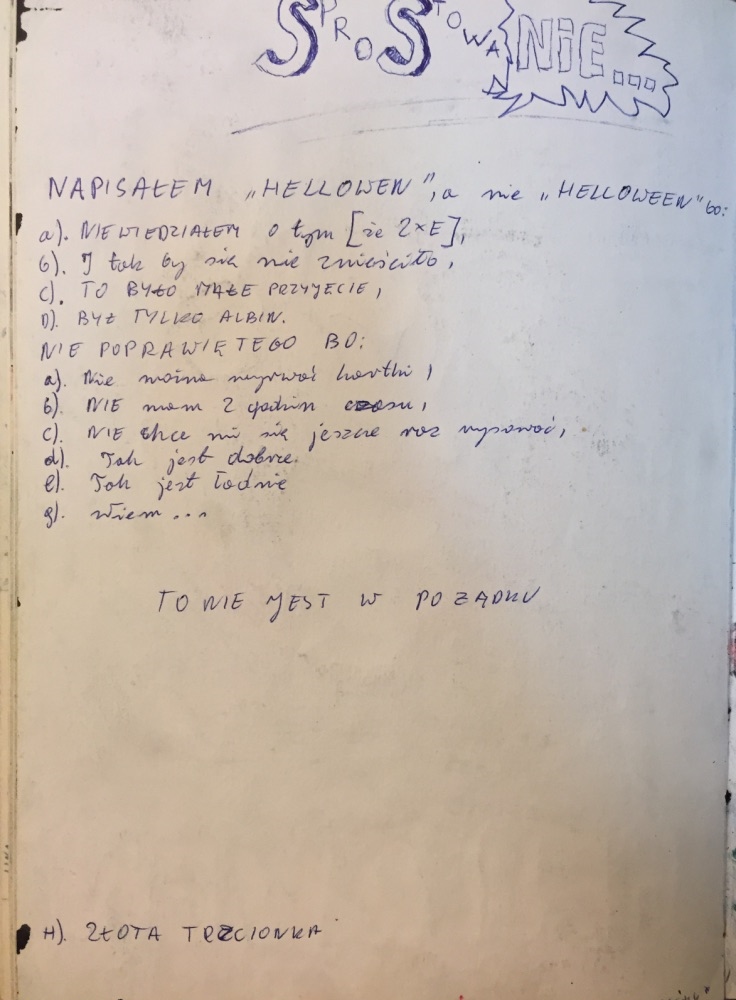 SPROSTOWANIE...
NAPISAŁEM „HELLOWEN", a nie „HELLOWEEN" bo:
a). NIEWIEDZIAŁEM o tym [że 2×E],
b). I tak by się nie zmieściło,
C). TO BYŁO MAŁE PRZYJECIE,
D). BYŁ TYLKO ALBIN.
NIE POPRAWIĘ TEGO BO:
a). Nie można wyrwać kartki,
b). NIE mam 2 godzin czasu,
c). NIE chce mi się jeszcze raz rysować,
d). Tak jest dobrze.
e). Tak jest ładnie
g). Wiem...
TO NIE JEST W POŻĄDKU
H). ZŁOTA TRZCIONKA